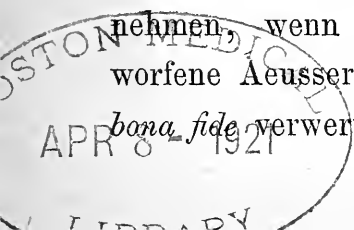 nehmen, wenn
worfene Aeusser
bona fide verwer
BOSTON MEDICAL
APR 8 - 1921
LIBRARY